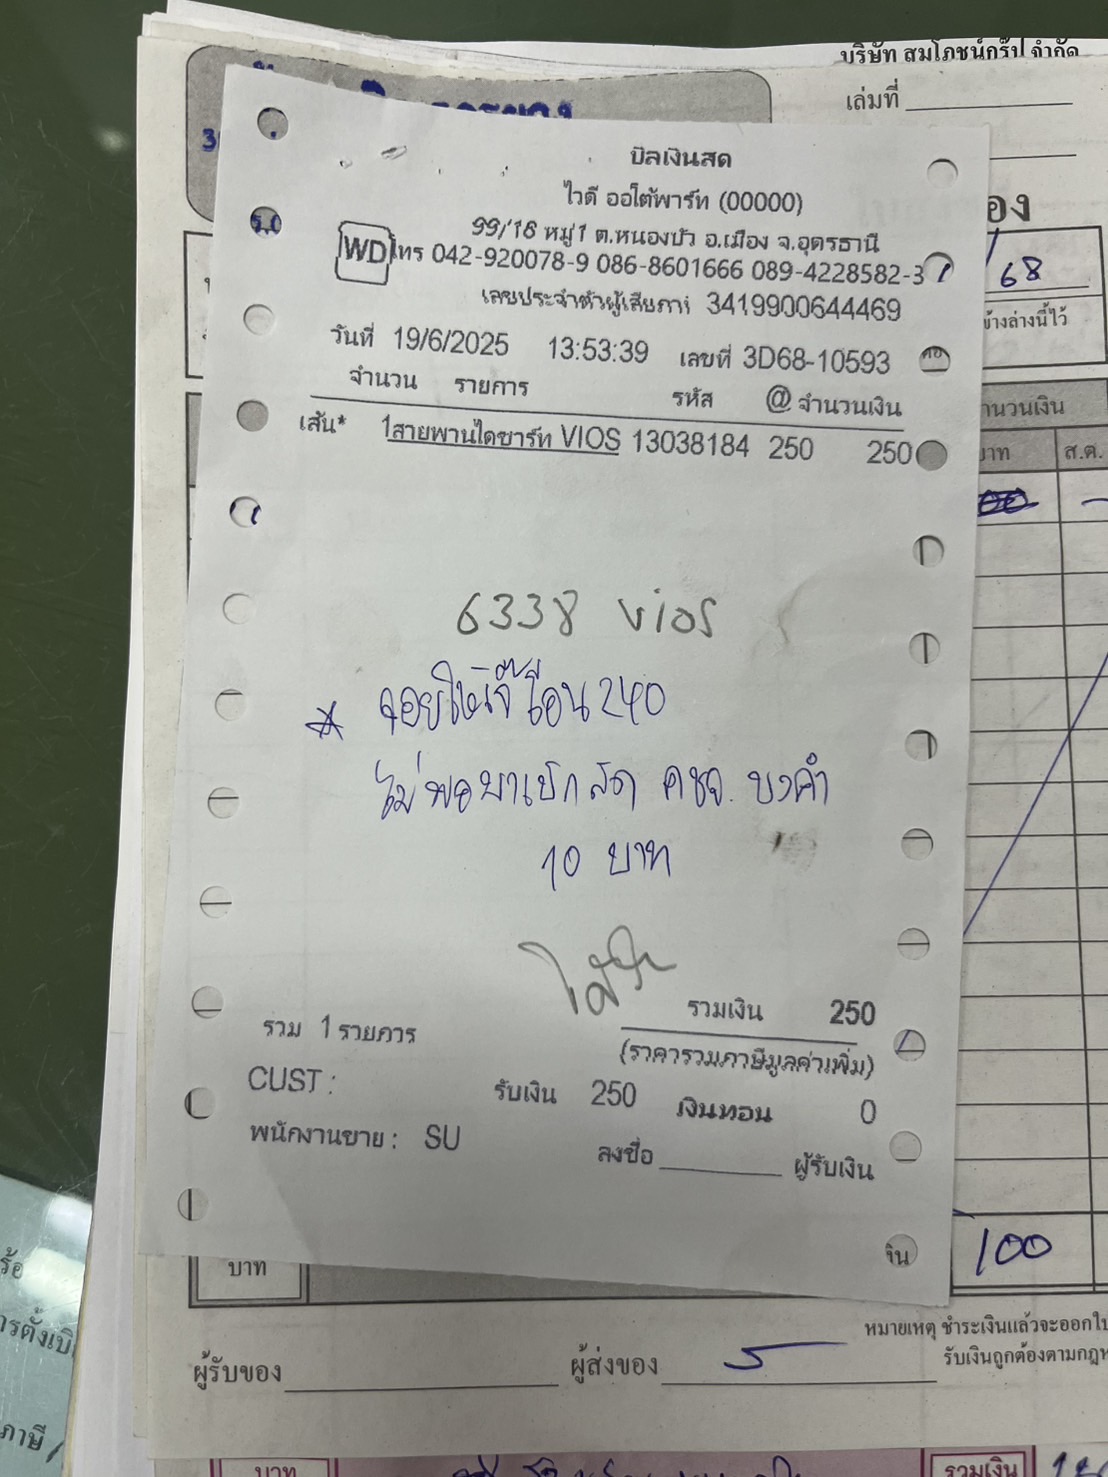 บริษัท สมโภชน์กรุ๊ป จำกัด
เล่มที่
บิลเงินสด
ไวดี ออโต้พาร์ท (00000)
99/18 หมู่1 ต.หนองบัว อ.เมือง จ.อุดรธานี
WD โทร 042-920078-9 086-8601666 089-4228582-3
เลขประจำตัวผู้เสียภาษี 3419900644469
68
ข้างล่างนี้ไว้
วันที่ 19/6/2025 13:53:39 เลขที่ 3D68-10593
จำนวน รายการ รหัส @ จำนวนเงิน
เส้น* 1สายพานไดชาร์ท VIOS 13038184 250 250
ส.ต.
6338 vios
จอยให้เจ๊โอน 240
ไม่พอมาเบิกสด คชจ. บงคำ
10 บาท
รวมเงิน 250
รวม 1 รายการ
(ราคารวมภาษีมูลค่าเพิ่ม)
CUST :
รับเงิน 250 เงินทอน 0
พนักงานขาย : SU
ลงชื่อ ผู้รับเงิน
บาท
100
หมายเหตุ ชำระเงินแล้วจะออกใบ
รับเงินถูกต้องตามกฎห
ผู้รับของ ผู้ส่งของ
ภาษี
บาท
รวมเงิน